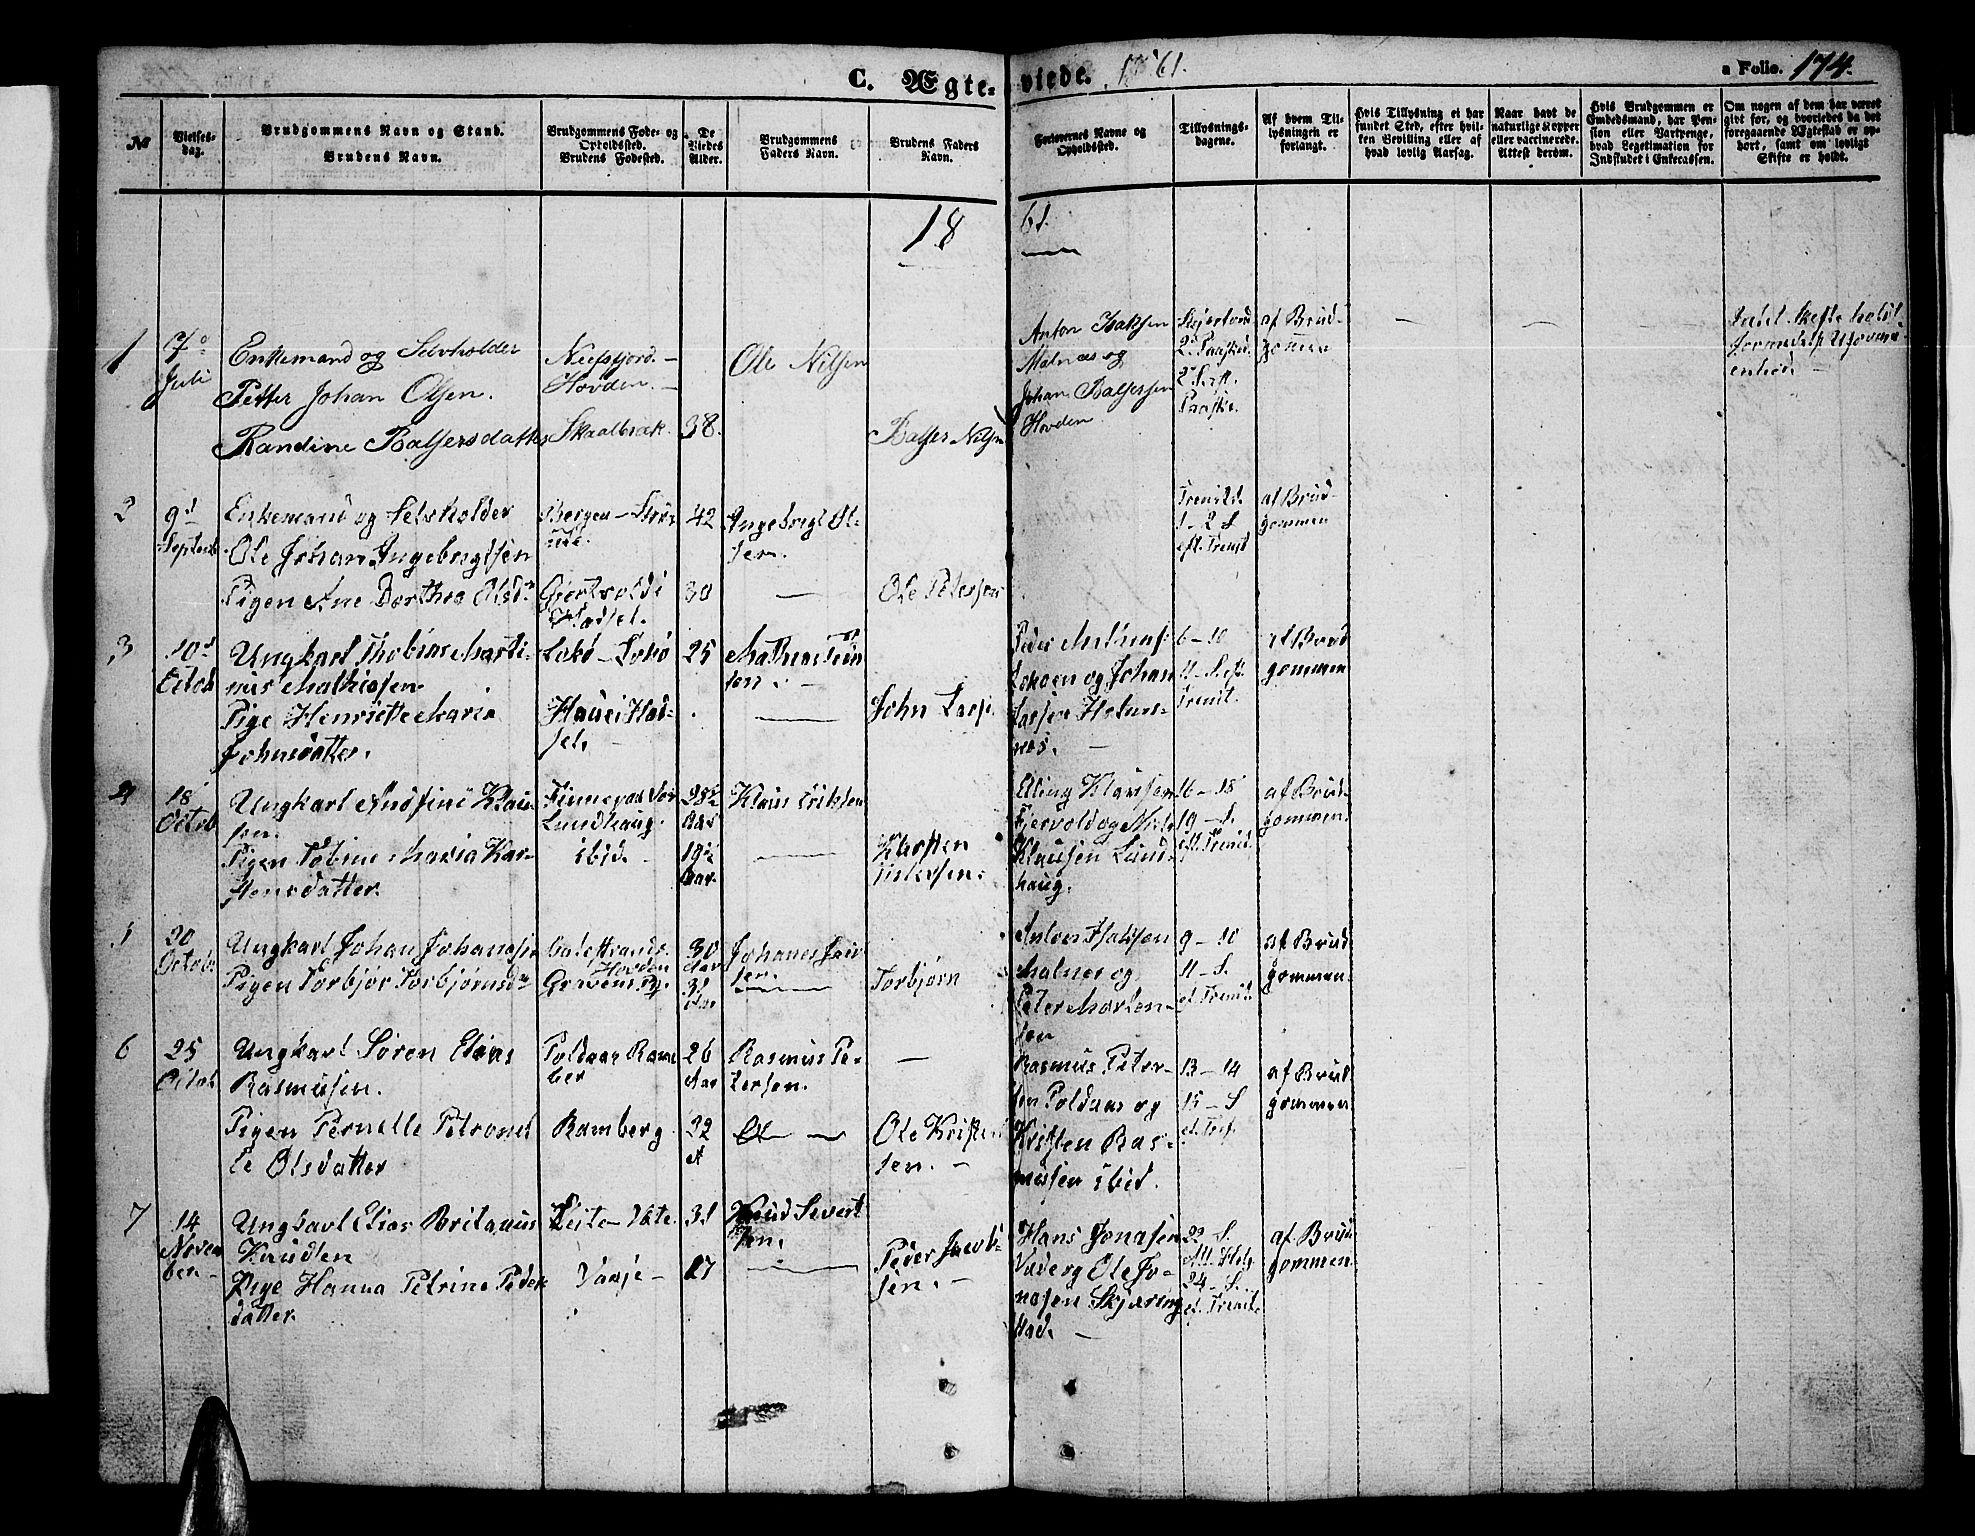 C. Ægte-
viede. 1861.
a Folio. 174.
№
Vielses-
dag.
Brudgommens Navn og Stand.
Brudens Navn.
Brudgommens Føde- og
Opholdssted.
Brudens Fødested.
De
Viedes
Alder.
Brudgommens
Faders Navn.
Brudens Faders
Navn.
Forlovernes Navne og
Opholdssted.
Tillysnings-
dagene.
Af hvem Til-
lysningen er
forlangt.
Hvis Tillysning ei har
fundet Sted, efter hvil-
ken Bevilling eller af
hvad lovlig Aarsag.
Naar havt de
naturlige Kopper
eller vaccinerede.
Attest derom.
Hvis Brudgommen er
Embedsmand, har Pen-
sion eller Vartpenge,
hvad Legetimation for
Indskudet i Enkecassen.
Om nogen af dem har været
givt før, og hvorledes da det
foregaaende Ægteskab er op-
hørt, samt om lovligt
Skifte er holdt.
18
61.
1
7de
Juli
Enkemand og Selvholder
Petter Johan Olsen.
Randine Balsersdatter
Hovden. —
Skaalbræk.
38.
Ole Nilsen
Balser Nilsen
Anton Isaksen
Malnæs og
Johan Balsersen
Hovden
2. Paasked.
2 S. eft.
Paaske.
af Brud-
gommen
—
—
—
2
9d
Septemb.
Enkemand og Selvholder
Ole Johan Ingebrigtsen
Pigen Ane Dorthea Olsd.
Bergen —
Hadsel.
42
30
Ingebrigt Ol-
sen.
—
Ole Petersen
1 - 2 S.
eft. Trinit
af Brud-
gommen
3
10d
Octob
Ungkarl Thobias Marti-
nus Mathiasen
Pige Henriette Maria
Johnsdatter.
Lokø — Lokø
Hauei Had-
sel. —
25
Mathias
sen. —
—
John Lars.
og Johan
Larsen Holm-
næs. —
6 - 10
11 - S. eft.
Trinit.
af Brud
gommen
4
18
Octob
Ungkarl Andsine Klau-
sen.
Pigen Tobine Maria Kar-
stensdatter.
Lundhaug.
ibid. —
28½
Aar
19½
Aar.
Klaus Eriksen
—
Karsten
Petersen.
Eling Klausen
Fjervold og Niels
Klausen Lund-
haug.
16 - 18
19 - S.
eft. Trinit.
af Brud-
gommen.
5
20
Octob.
Ungkarl Johan Johanessen
Pigen Torbjør Torbjørnsd.
Hovden
Gravens Pg.
30
Aar
31
Aar
Johanes
sen.
—
Torbjørn
Anton Isaksen
Malnes og
Peter Morten-
sen
9 - 10
11 - S.
ef. Trinit.
af Brud
gommen.
6
25
Octob
Ungkarl Søren Elias
Rasmusen.
Pigen Pernelle Petronel
le Olsdatter
Poldaas Ram-
ber
Ramberg
26
Aar
22
A
Rasmus Pe-
tersen.
—
Ole Kristen
sen. —
Rasmus Peter-
sen Poldaas og
Kristen Ras-
musen ibid.
13 - 14
15 - S
af Brud
gommen
7
14
Novem
ber —
Ungkarl Elias Britanus
Knudsen
Pige Hanna Petrine Peders
datter.
Leite —
Vaaje —
31
27
Knud Severt
sen.
—
Peder Jacob-
sen. —
Hans Jonasen
og Ole Jo-
nasen Skjæring
stad. —
22 - S.
24 - S.
ef. Trinit.
af Brud
gommen